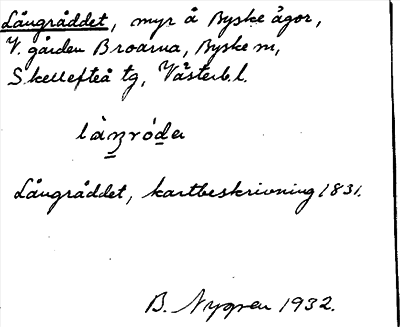 Långråddet, myr å Byske ågor,
V. gården Broarna, Byske sn,
Skellefteå tg, Västerb. l.
Långråddet, kartbeskrivning 1831.
B. Nygren 1932.